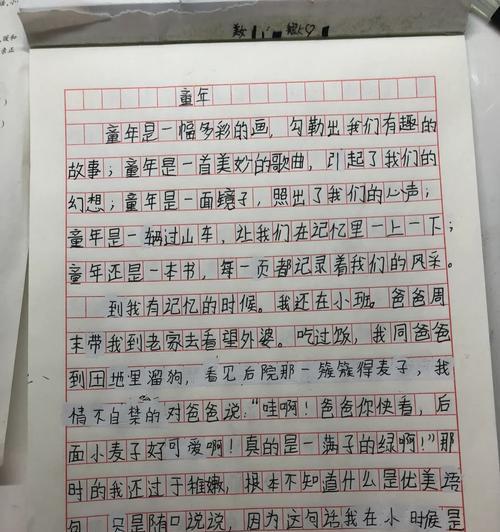 童年
童年是一幅多彩的画，勾勒出我们有趣的
故事；童年是一首美妙的歌曲，引起了我们的
幻想；童年是一面镜子，照出了我们的心声；
童年是一辆过山车，让我们在记忆里一上一下；
童年还是一本书，每一页都记录着我们的风采。
到我有记忆的时候。我还在小班。爸爸周
末带我到老家去看望外婆。吃过饭，我同爸爸
到田地里溜狗，看见后院那一簇簇得麦子，我
情不自禁的对爸爸说："哇啊！爸爸你快看，后
面小麦子好可爱啊！真的是一满子的绿啊！"那
时的我还过于稚嫩，根本不知道什么是优美语
句，只是随口说说，因为这句话我在小时候是